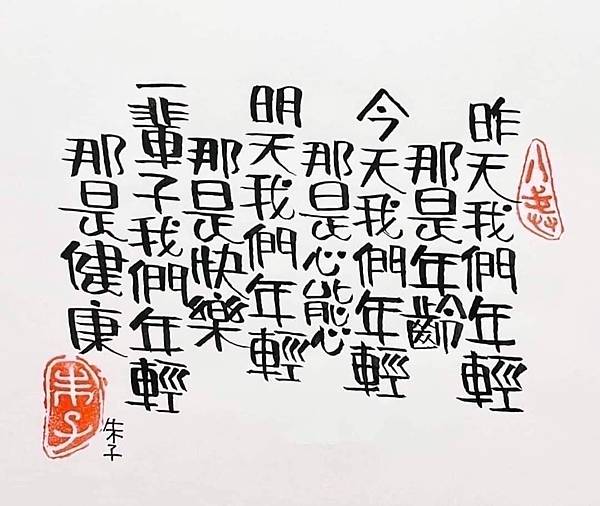 昨天我們年輕
那是年齡
今天我們年輕
那是心態
明天我們年輕
那是快樂
一輩子我們年輕
那是健康
朱子
朱子